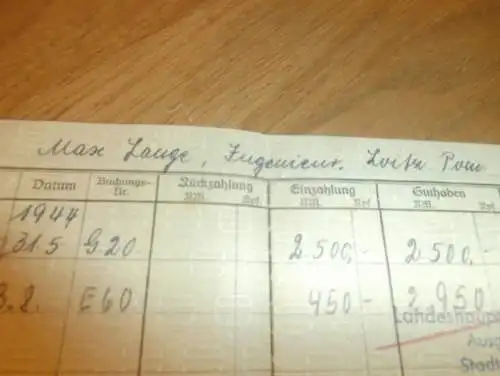 Max Lange, Ingenieur. Loitz Pom
Datum Buchungs-Nr. Rückzahlung RM. Rpf. Einzahlung RM. Rpf. Guthaben RM. Rpf.
1944
31.5 G.20 2 500,- 2 500.-
3.2. E60 450- 2 950
Landeshaup
Ausg
Stadt